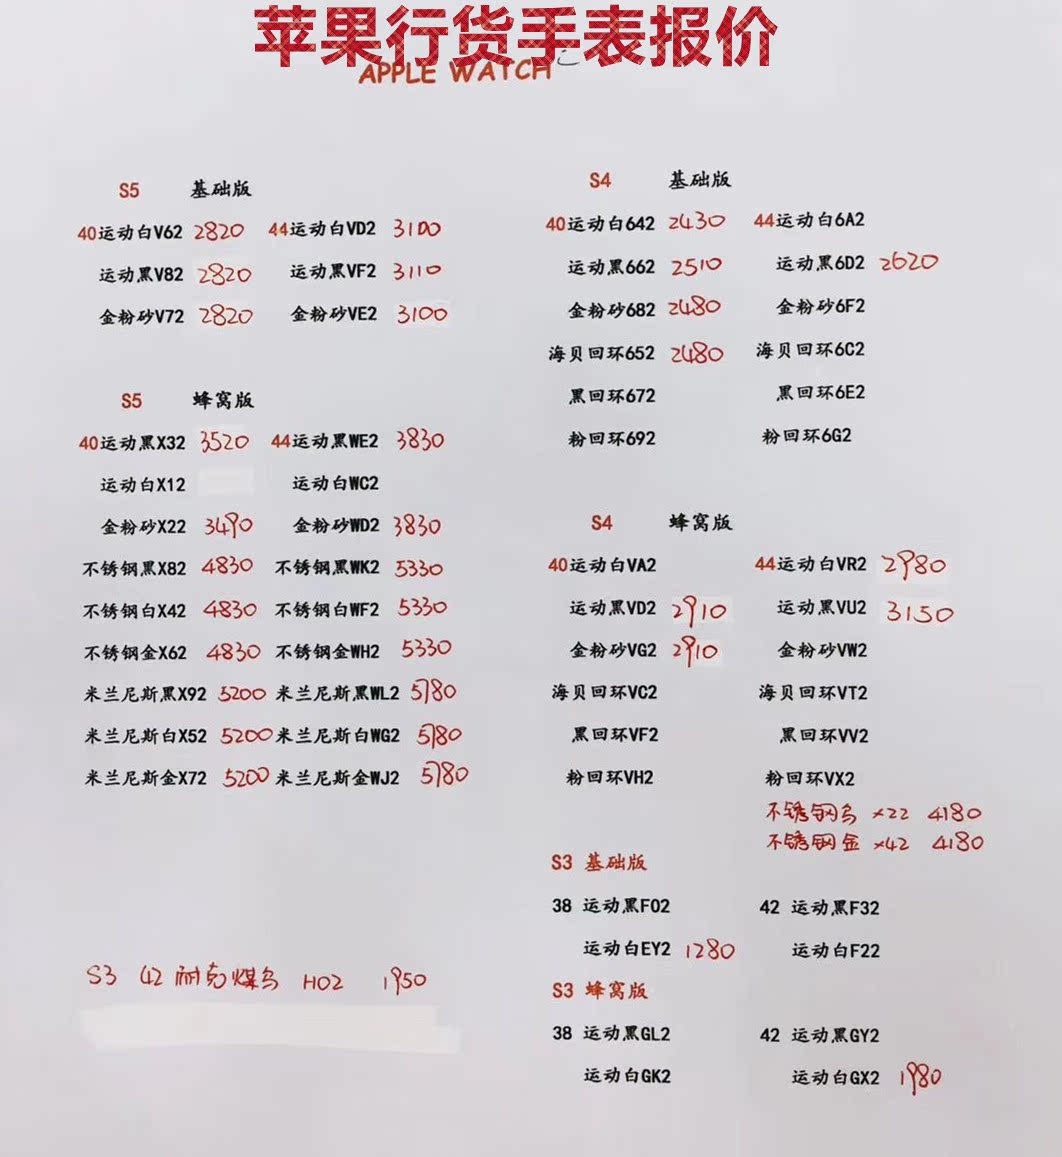 苹果行货手表报价
APPLE WATCH
S5 基础版
40运动白V62 2820 44运动白VD2 3100
运动黑V82 2820 运动黑VF2 3110
金粉砂V72 2820 金粉砂VE2 3100
S5 蜂窝版
40运动黑X32 3520 44运动黑WE2 3830
运动白X12 运动白WC2
金粉砂X22 3490 金粉砂WD2 3830
不锈钢黑X82 4830 不锈钢黑WK2 5330
不锈钢白X42 4830 不锈钢白WF2 5330
不锈钢金X62 4830 不锈钢金WH2 5330
米兰尼斯黑X92 5200 米兰尼斯黑WL2 5780
米兰尼斯白X52 5200 米兰尼斯白WG2 5780
米兰尼斯金X72 5200 米兰尼斯金WJ2 5780
S3 42 耐克煤鸟 H02 1950
S4 基础版
40运动白642 2430 44运动白6A2
运动黑662 2510 运动黑6D2 2620
金粉砂682 2480 金粉砂6F2
海贝回环652 2480 海贝回环6C2
黑回环672 黑回环6E2
粉回环692 粉回环6G2
S4 蜂窝版
40运动白VA2 44运动白VR2 2980
运动黑VD2 2910 运动黑VU2 3150
金粉砂VG2 2910 金粉砂VW2
海贝回环VC2 海贝回环VT2
黑回环VF2 黑回环VV2
粉回环VH2 粉回环VX2
不锈钢乌 X22 4180
不锈钢金 X42 4180
S3 基础版
38 运动黑F02 42 运动黑F32
运动白EY2 1280 运动白F22
S3 蜂窝版
38 运动黑GL2 42 运动黑GY2
运动白GK2 运动白GX2 1980